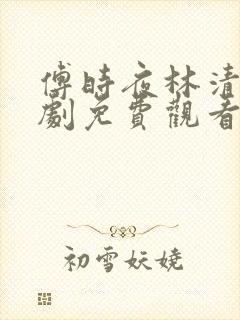 傅時夜林清
劇免費觀看
初雪妖嬈